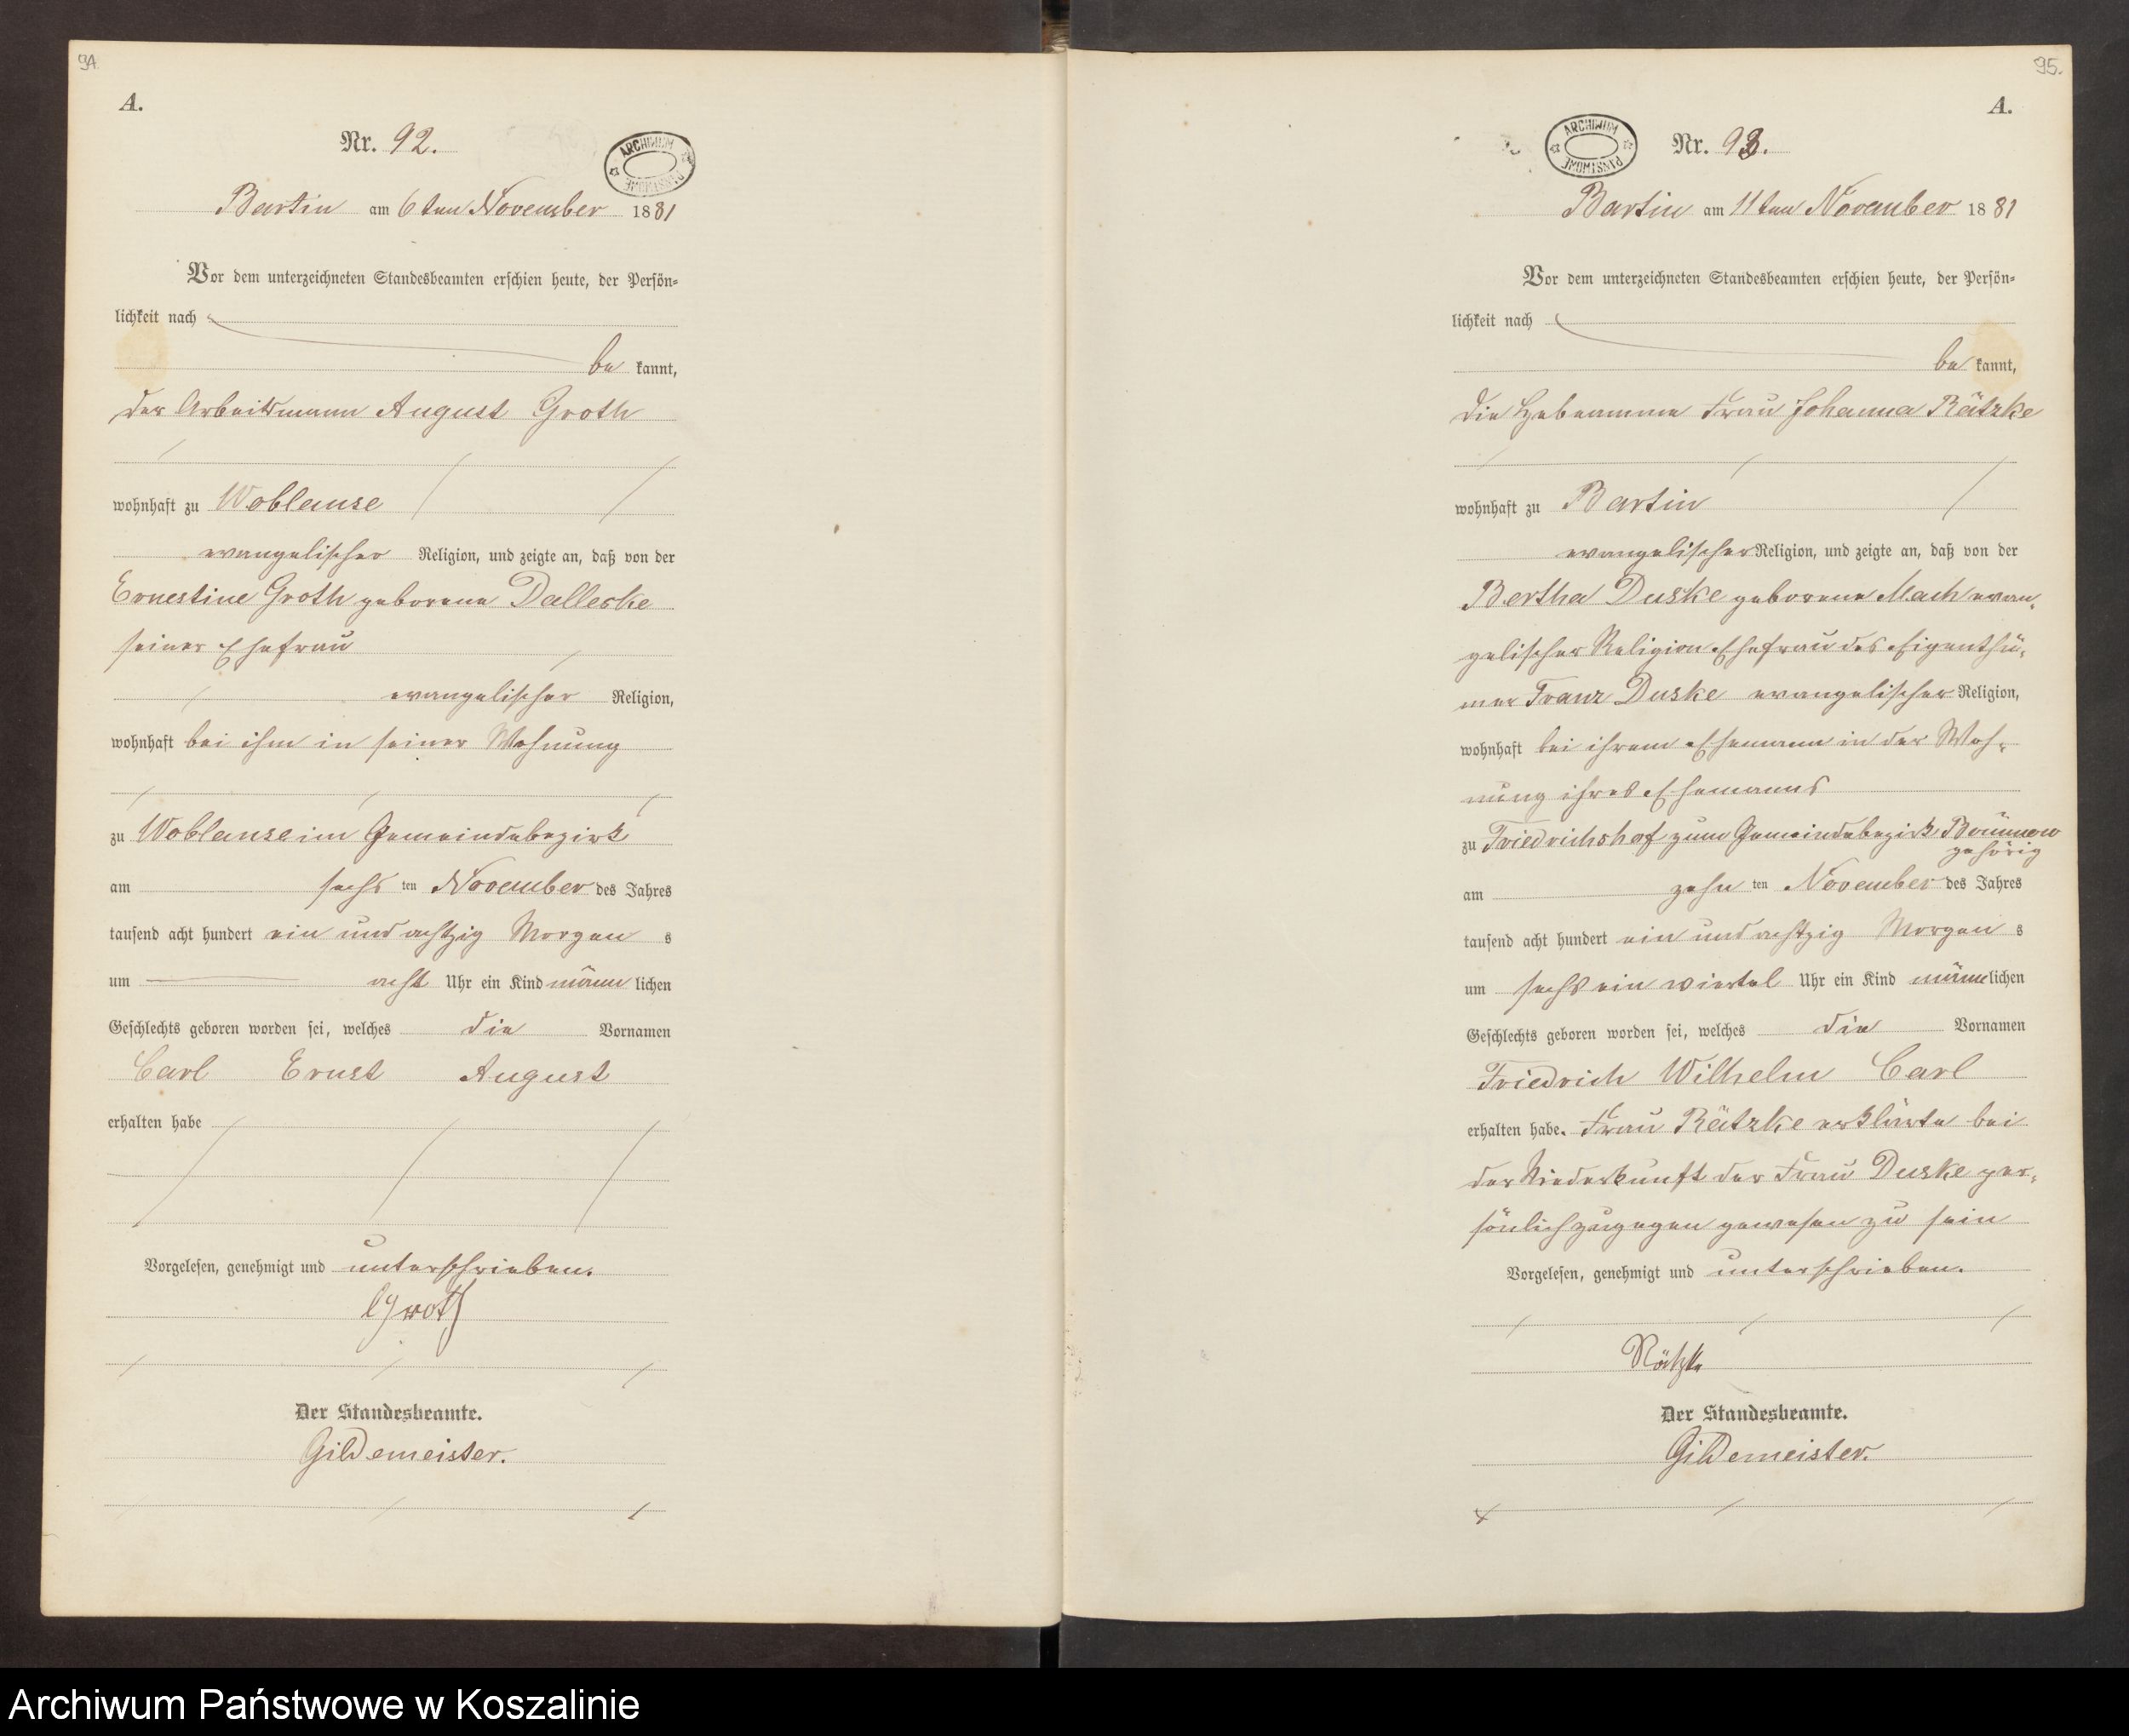 94.
A.
Nr. 92.
ARCHIWUM PAŃSTWOWE
Bartin am 6ten November 1881
Vor dem unterzeichneten Standesbeamten erschien heute, der Persön-
lichkeit nach
be kannt,
der Arbeitsmann August Groth
wohnhaft zu Woblanse
evangelischer Religion, und zeigte an, daß von der
Ernestine Groth geborene Dalleske
seiner Ehefrau
evangelischer Religion,
wohnhaft bei ihm in seiner Wohnung
zu Woblanse im Gemeindebezirk
am sechs ten November des Jahres
tausend acht hundert ein und achtzig Morgen s
um acht Uhr ein Kind männ lichen
Geschlechts geboren worden sei, welches die Vornamen
Carl Ernst August
erhalten habe
Vorgelesen, genehmigt und unterschrieben.
Groth
Der Standesbeamte.
Gildemeister.
95.
A.
ARCHIWUM PAŃSTWOWE
Nr. 93.
Bartin am 11ten November 1881
Vor dem unterzeichneten Standesbeamten erschien heute, der Persön-
lichkeit nach
be kannt,
die Hebeamme Frau Johanna Rätzke
wohnhaft zu Bartin
evangelischer Religion, und zeigte an, daß von der
Bertha Duske geborene Mach evan-
gelischer Religion Ehefrau des Eigenthü-
mer Franz Duske evangelischer Religion,
wohnhaft bei ihrem Ehemann in der Woh-
nung ihres Ehemanns
zu Friedrichshof zum Gemeindebezirk Brünnow
gehörig
am zehn ten November des Jahres
tausend acht hundert ein und achtzig Morgen s
um sechs ein viertel Uhr ein Kind männlichen
Geschlechts geboren worden sei, welches die Vornamen
Friedrich Wilhelm Carl
erhalten habe. Frau Rätzke erklärte bei
der Niederkunft der Frau Duske per-
sönlich zugegen gewesen zu sein
Vorgelesen, genehmigt und unterschrieben.
Rätzke
Der Standesbeamte.
Gildemeister.
Archiwum Państwowe w Koszalinie